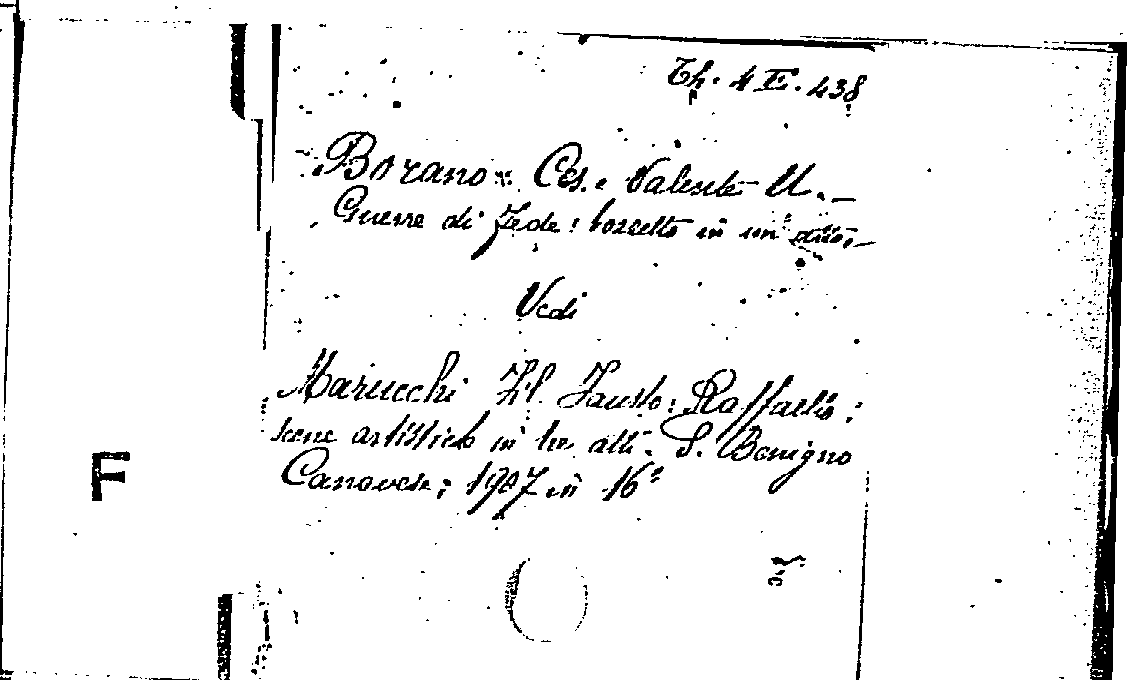 Th. 4 E. 438
Borano Ces. e Valente U. _
Guerre di fede: bozzetto in un atto, _
Vedi
Marucchi Fl. Fausto: Raffaello:
scene artistiche in tre atti. S. Benigno
F
Canavese; 1907 in 16°